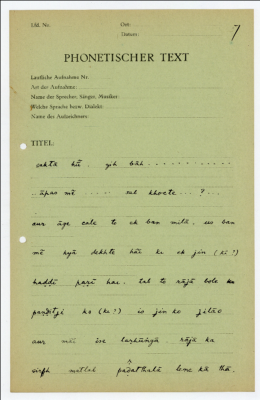 Lfd. Nr.
Ort:
Datum:
7
PHONETISCHER TEXT
Lautliche Aufnahme Nr.
Art der Aufnahme:
Name des Sprechers, Sängers, Musikers:
Welche Sprache bezw. Dialekt:
Name des Aufzeichners:
TITEL:
saktā hū. yih bāh .....
āpas mē ..... sul khocte ... ? ...
aur āge cale to ek ban milā. us ban
mē kyā dekhte hāī ke ek jin (ki?)
haddī paṛī hai. tab to rājā bole ke
paṇḍitji ko (ke?) is jin ko jilāo
aur māi ise laṛhūṅgā. rājā ka
sirf matlab
lene kā thā.